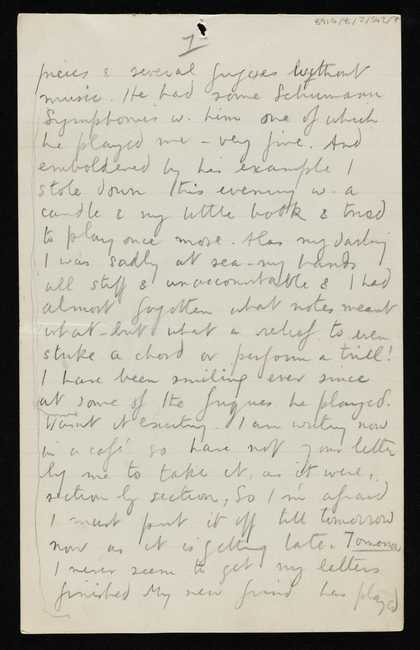 7
pieces & several fugues without
music. He had some Schumann
Symphonies w. him one of which
he played me – very fine. And
emboldened by his example I
stole down this evening w. a
candle & my little book & tried
to play once more. Alas my darling
I was sadly at sea – my hands
all stiff & unaccountable & I had
almost forgotten what notes meant
what – but what a relief to even
strike a chord or perform a trill!
I have been smiling ever since
at some of the fugues he played.
Wasn't it exciting. I am writing now
in a café so have not your letter
by me to take it, as it were,
section by section, so I'm afraid
I must put it off till tomorrow
now as it is getting late. Tomorrow
I never seem to get my letters
finished My new friend has played